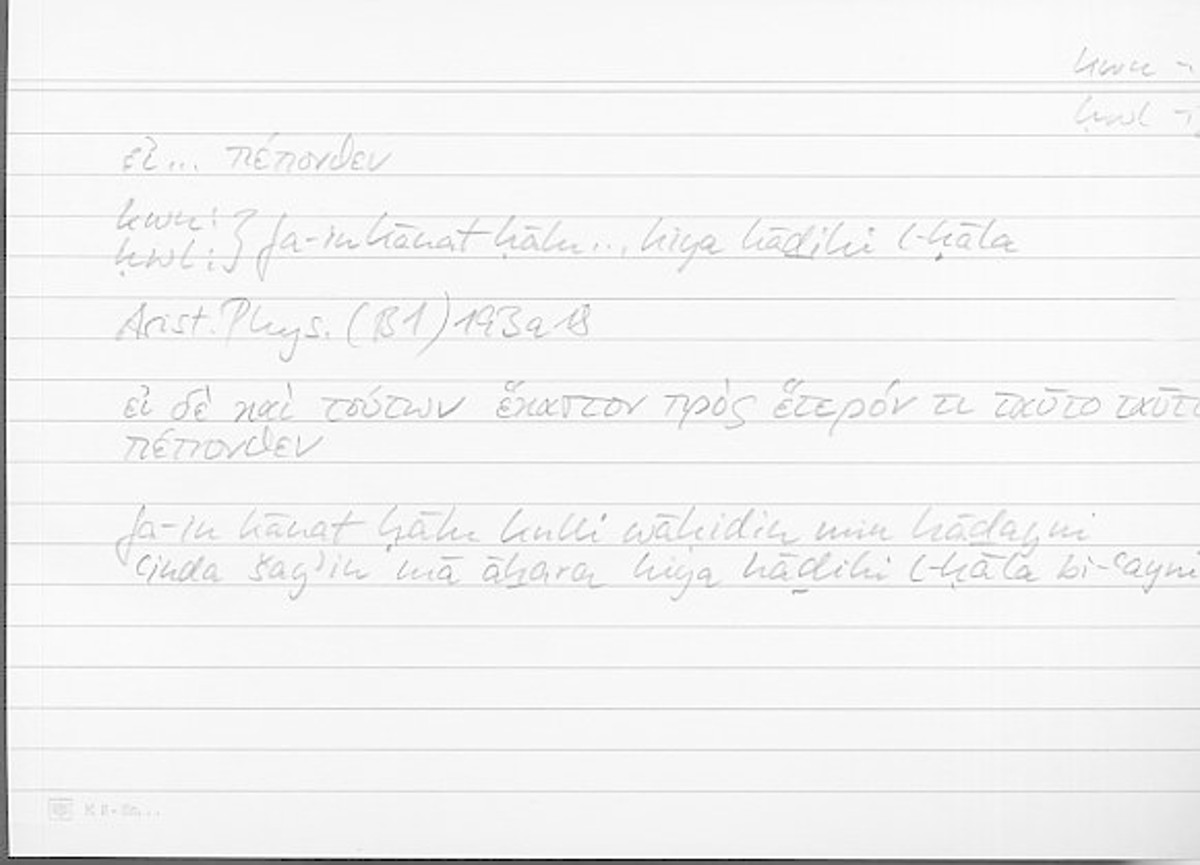 kwn -
ḥwl -
εἰ... πέπονθεν
kwn:
ḥwl: } fa-in kānat ḥālu... hiya hāḏihi l-ḥāla
Arist. Phys. (B1) 193a18
εἰ δὲ καὶ τούτων ἕκαστον πρὸς ἕτερόν τι ταὐτο ταὐτ
πέπονθεν
fa-in kānat ḥālu kulli wāḥidin min hāḏayni
ʿinda šayʾin mā āḫara hiya hāḏihi l-ḥāla bi-ʿayni